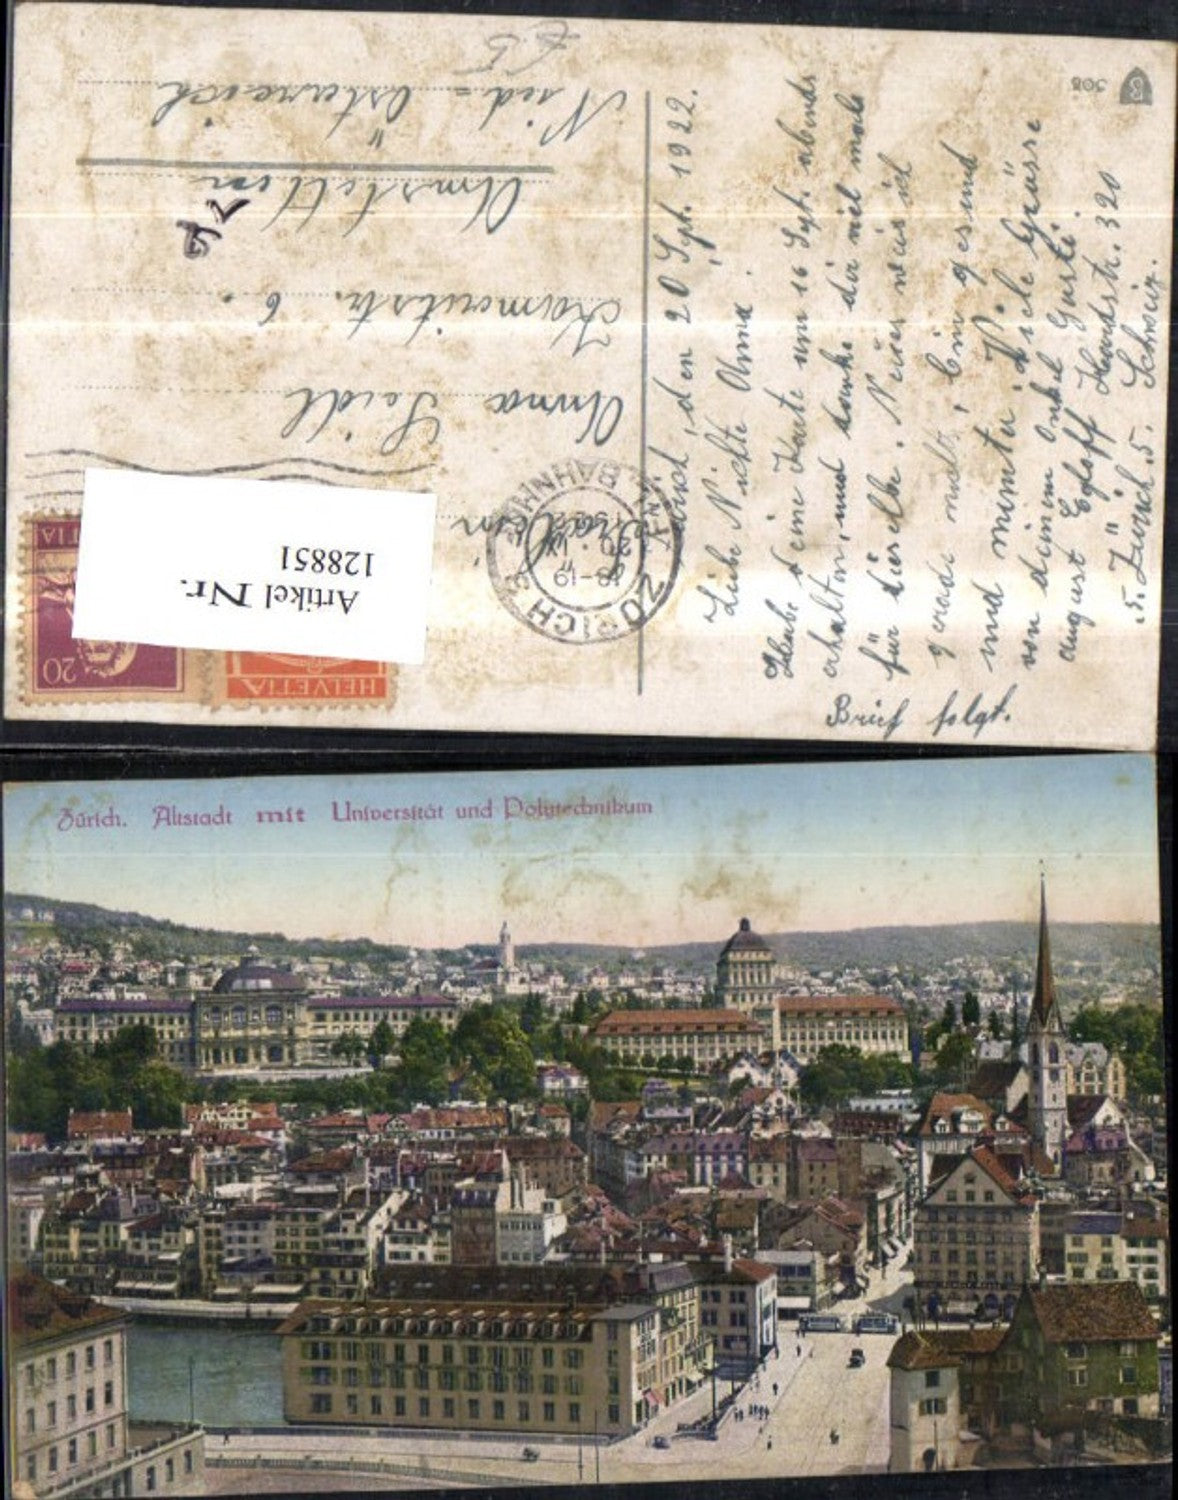 Zürich, den 20 Sept. 1922.
Liebe Nichte Anna!
Habe deine Karte am 16 Sept. abends
erhalten, und danke dir viel mals
für dieselbe. Neues weis ich
gerade nicht, bin gesund
und munter. Viele Grüsse
von deinem Onkel Gusti.
August Egloff Hardstr. 320
5. Zürich 5. Schweiz.
Brief folgt.
308
Fräulein
Anna Seidl
6.
Amstetten
Nied = Österreich
ZÜRICH
BAHNHOF
18-19
20. IX.
HELVETIA
20
Artikel Nr.
128851
Zürich. Altstadt mit Universität und Polytechnikum